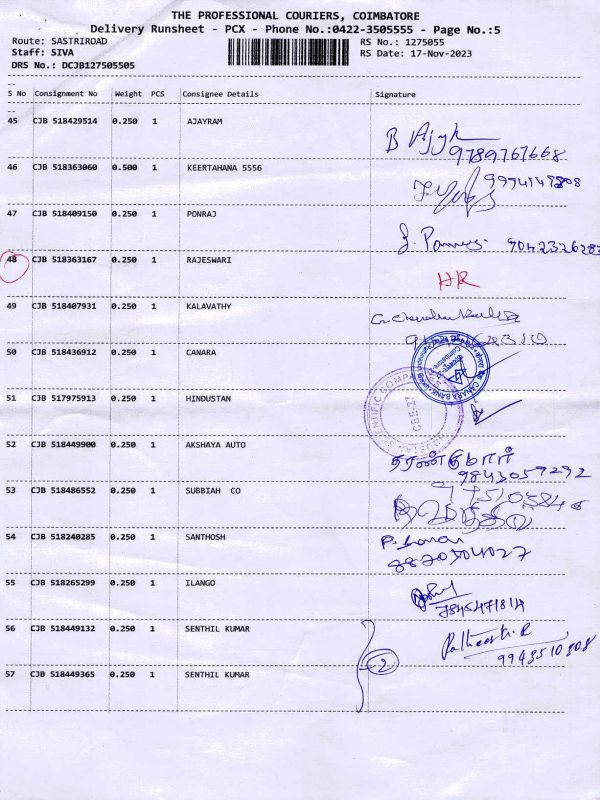 THE PROFESSIONAL COURIERS, COIMBATORE
Delivery Runsheet - PCX - Phone No.:0422-3505555 - Page No.:5
Route: SASTRIROAD RS No.: 1275055
Staff: SIVA RS Date: 17-Nov-2023
DRS No.: DCJB127505505
S No Consignment No Weight PCS Consignee Details Signature
45 CJB 518429514 0.250 1 AJAYRAM
9789767668
46 CJB 518363060 0.500 1 KEERTAHANA 5556
47 CJB 518409150 0.250 1 PONRAJ
48 CJB 518363167 0.250 1 RAJESWARI
HR
49 CJB 518407931 0.250 1 KALAVATHY
50 CJB 518436912 0.250 1 CANARA
51 CJB 517975913 0.250 1 HINDUSTAN
52 CJB 518449900 0.250 1 AKSHAYA AUTO
9843059292
53 CJB 518486552 0.250 1 SUBBIAH CO
54 CJB 518240285 0.250 1 SANTHOSH
8870504027
55 CJB 518265299 0.250 1 ILANGO
56 CJB 518449132 0.250 1 SENTHIL KUMAR
2
57 CJB 518449365 0.250 1 SENTHIL KUMAR